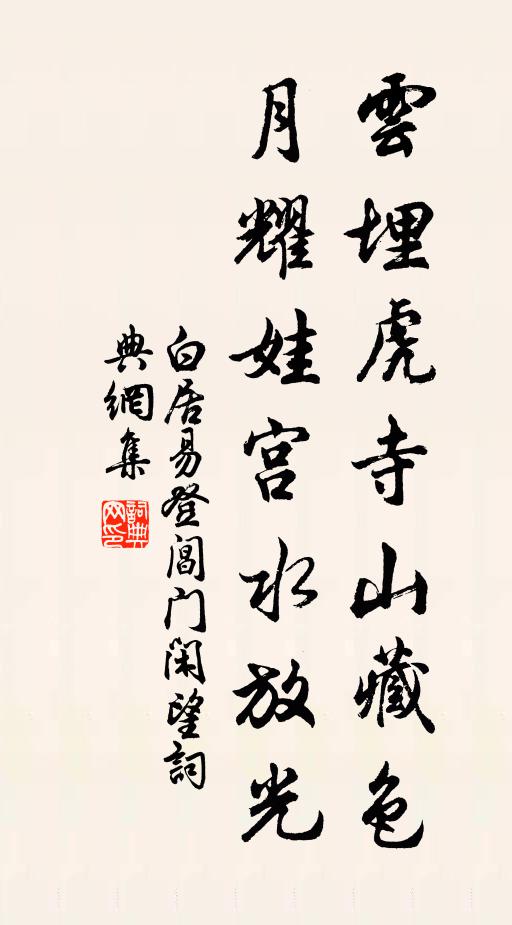 雲埋虎寺山藏色
月耀娃宫水放光
白居易登閶门闲望詞
典網集
詞典网印